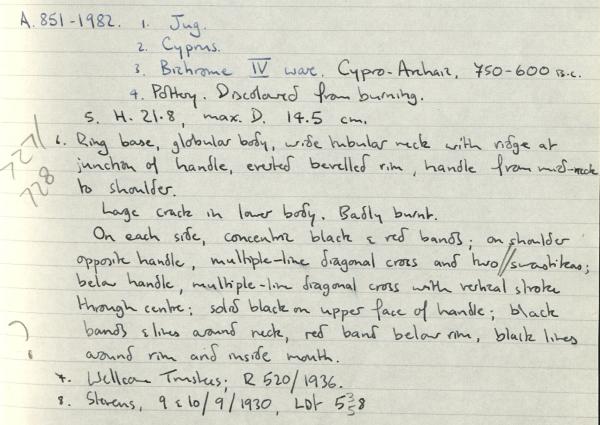 A.851-1982. 1. Jug.
2. Cyprus.
3. Bichrome IV ware. Cypro-Archaic, 750-600 B.C.
4. Pottery. Discoloured from burning.
5. H. 21.8, max. D. 14.5 cm.
727/
728
6. Ring base, globular body, wide tubular neck with ridge at
junction of handle, everted bevelled rim, handle from mid-neck
to shoulder.
Large crack in lower body. Badly burnt.
On each side, concentric black & red bands; on shoulder
opposite handle, multiple-line diagonal cross and two//swastikas;
below handle, multiple-line diagonal cross with vertical stroke
through centre; solid black on upper face of handle; black
? bands & lines around neck, red band below rim, black lines
around rim and inside mouth.
7. Wellcome Trustees; R 520/1936.
8. Stevens, 9 & 10/9/1930, Lot 58